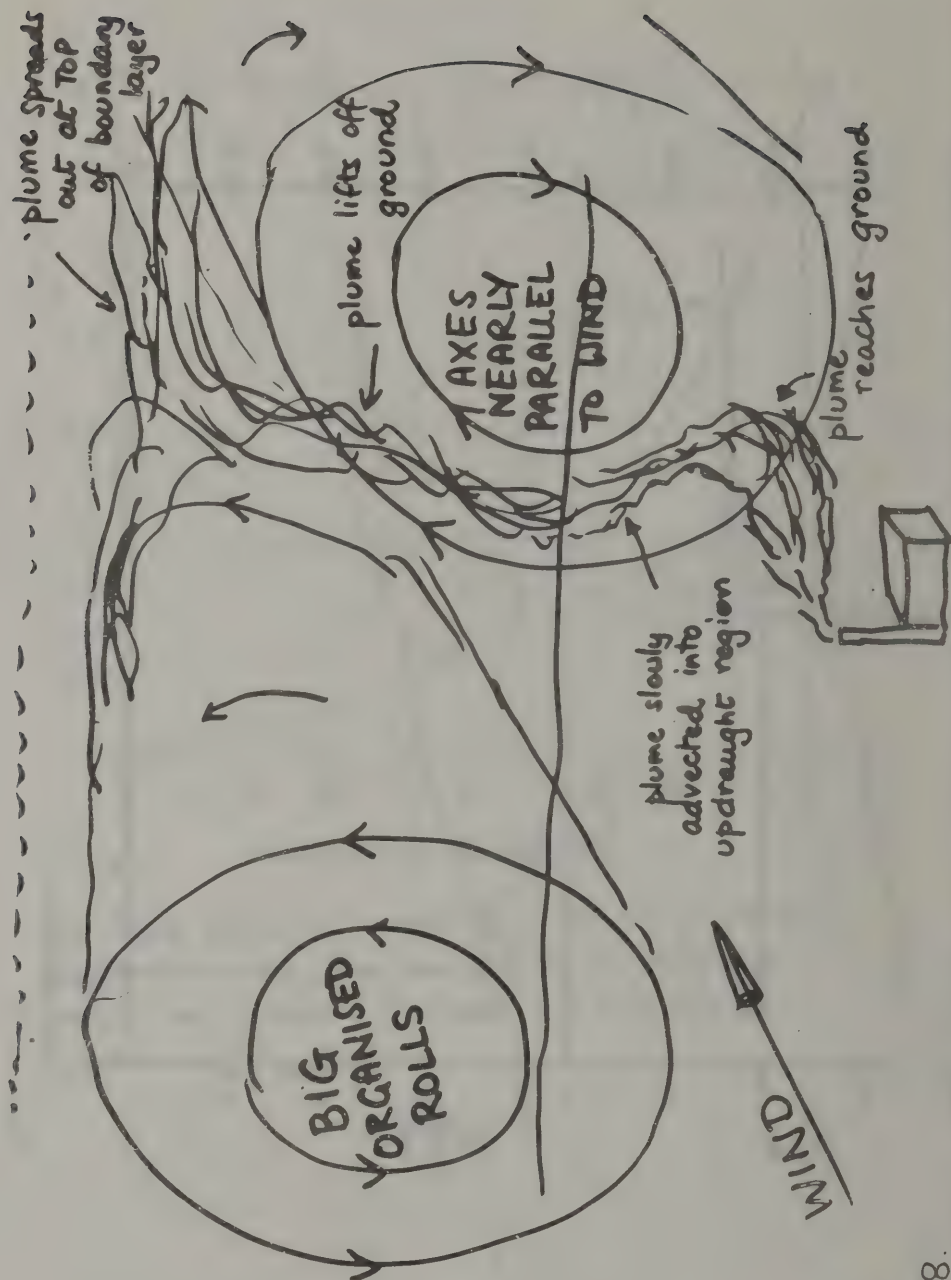 plume spreads
out at TOP
of boundary
layer
plume lifts off
ground
AXES
NEARLY
PARALLEL
TO WIND
BIG
ORGANISED
ROLLS
plume slowly
advected into
updraught region
plume
reaches ground
WIND
8.